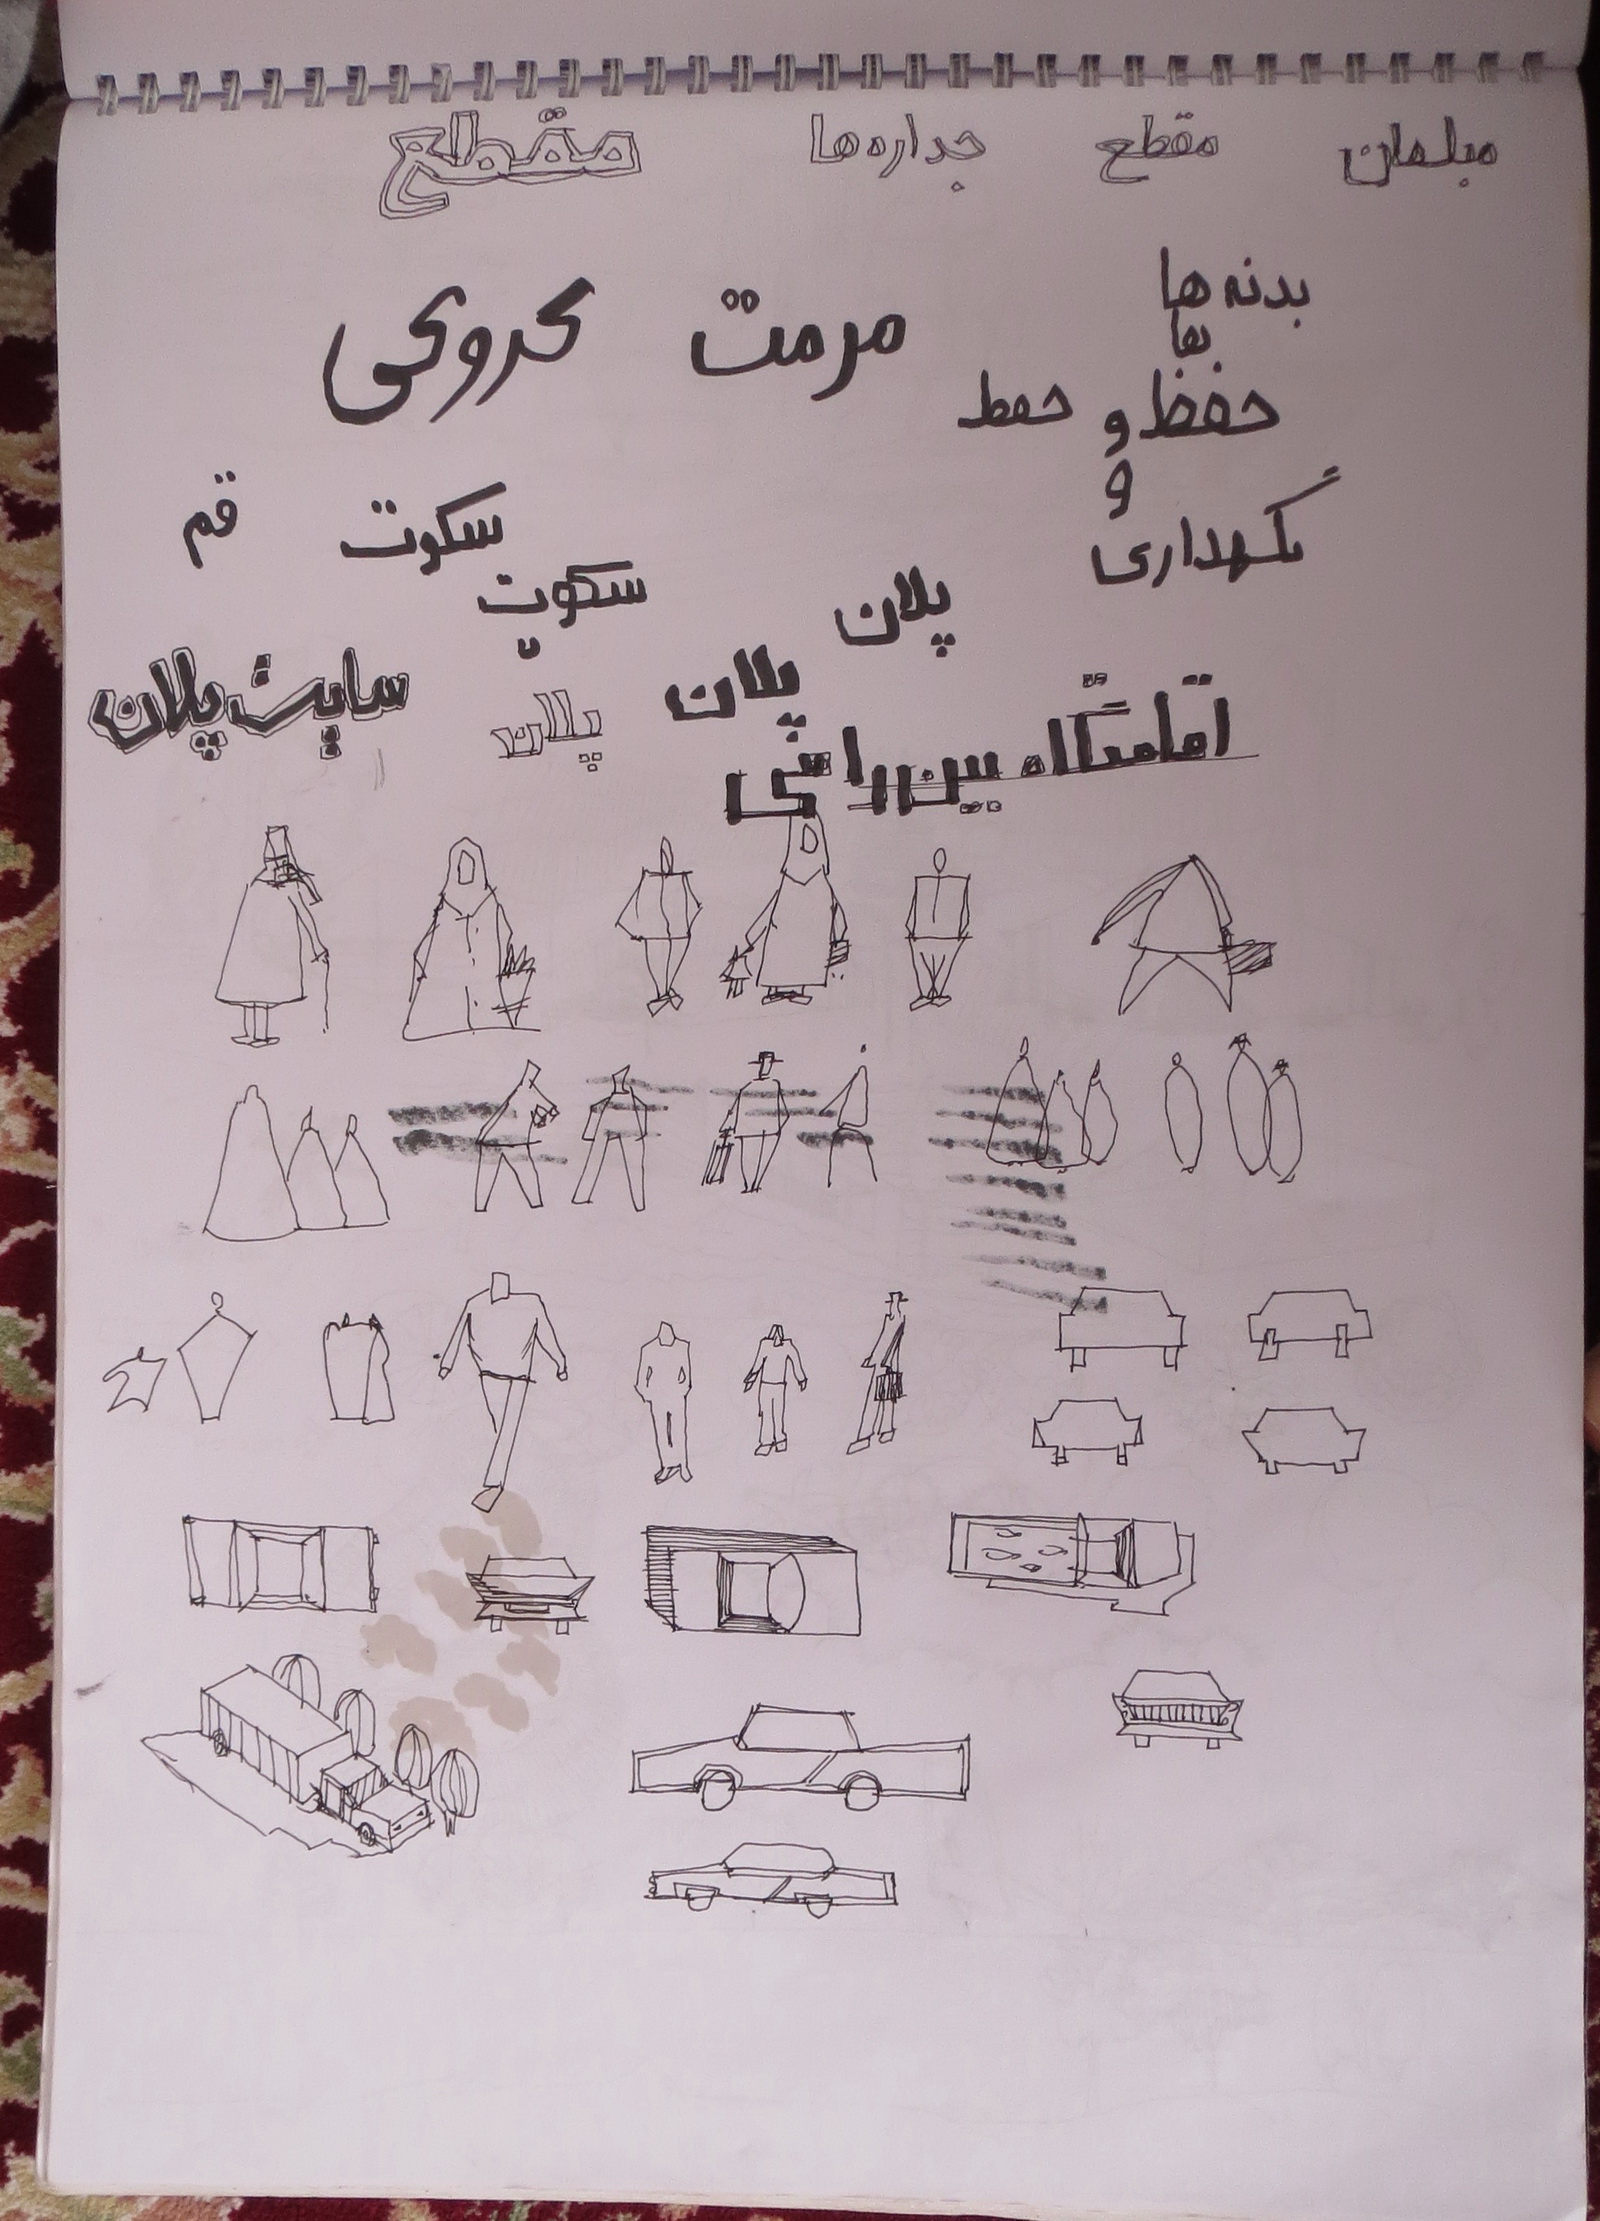 مبلمان مقطع جداره‌ها مقطع
بدنه‌ها
بها
مرمت
حفظ و حفط
و
نگهداری
سکوت قم
سکوت
پلان
پلان
سایت پلان
پلان
اقامتگاه
بین راهی